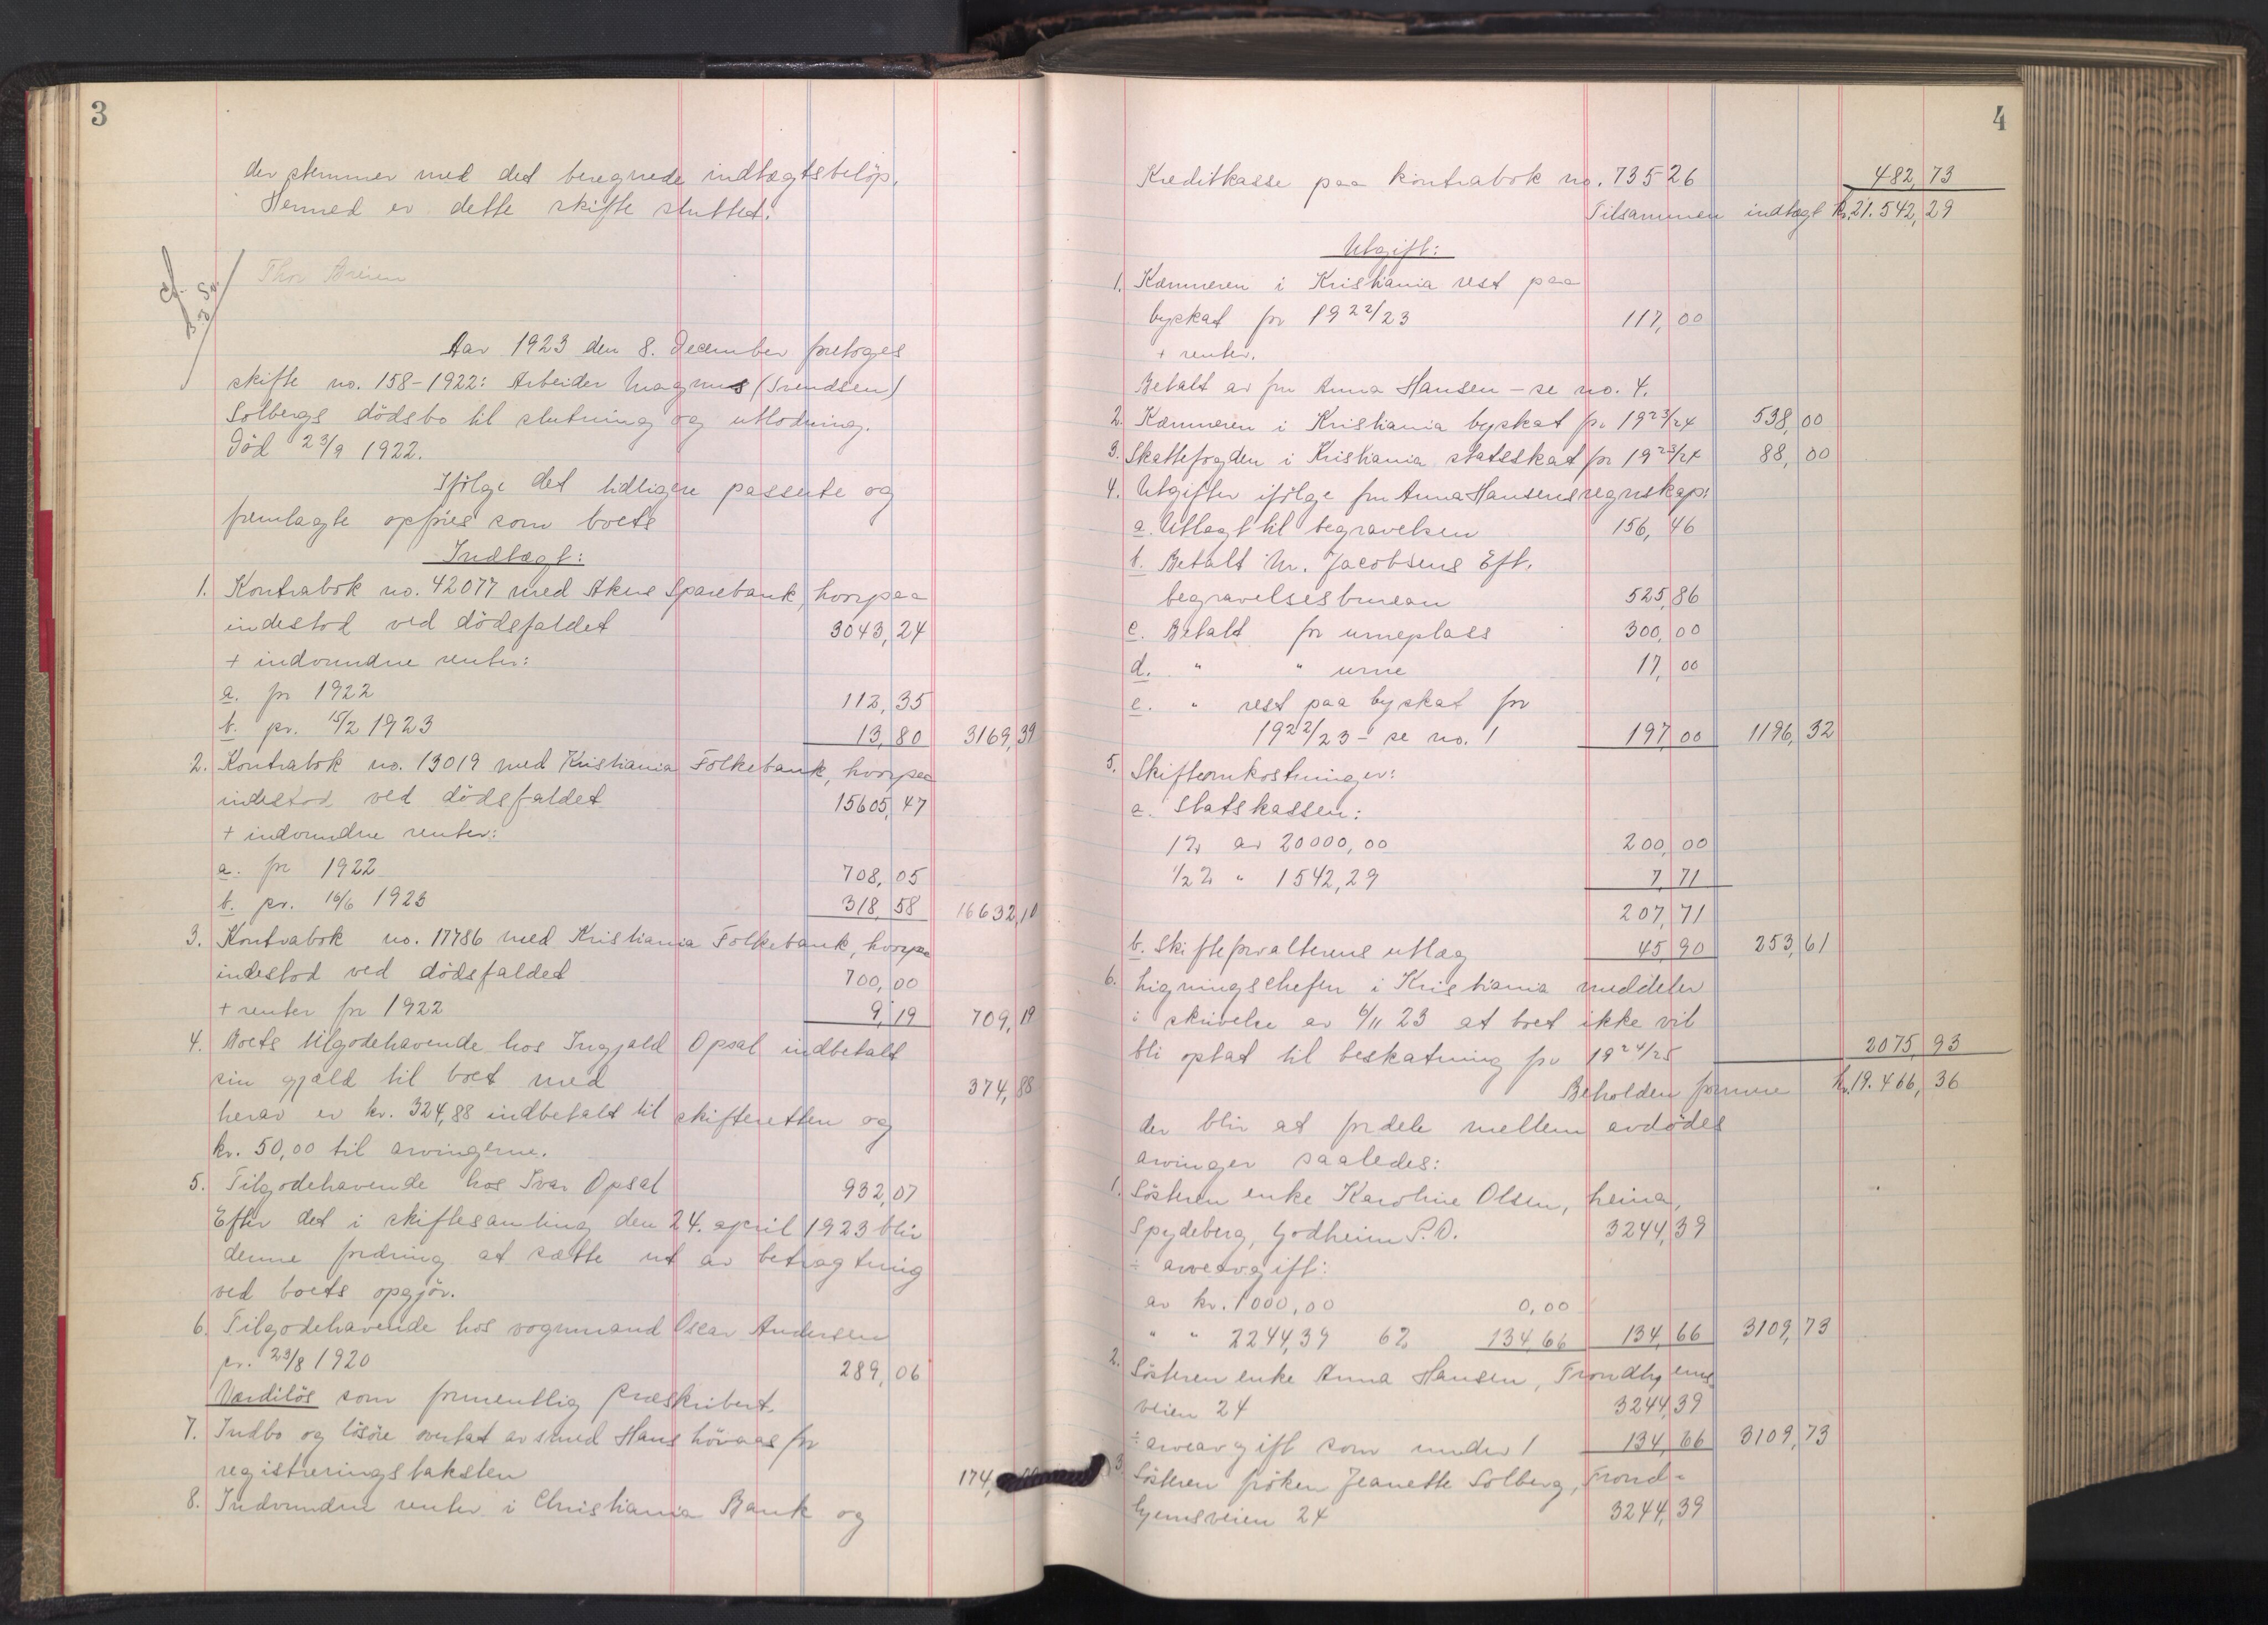 3
der stemmer med det beregnede indtægtsbelöp.
Hermed er dette skifte sluttet.
Thor Breien
Aar 1923 den 8. december foretoges
skifte no. 158-1922: Arbeider Magnus (Svendsen)
Solbergs dödsbo til slutning og utlodning.
Död 23/9 1922.
Ifölge det tidligere passerte og
fremlagte opföres som boets
Indtægt:
1. Kontrabok no. 42077 med Akers Sparebank, hvorpaa
indestod ved dödsfaldet 3043,24
+ indvundne renter:
a. for 1922 112,35
b. pr. 15/2 1923 13,80 3169,39
2. Kontrabok no. 13019 med Kristiania Folkebank, hvorpaa
indestod ved dödsfaldet 15605,47
+ indvundne renter:
a. for 1922 708,05
b. pr. 16/6 1923 318,58 16632,10
3. Kontrabok no. 17786 med Kristiania Folkebank, hvorpaa
indestod ved dödsfaldet 700,00
+ renter for 1922 9,19 709,19
4. Boets tilgodehavende hos Ingjald Opsal indbetalt
sin gjæld til boet med 374,88
herav er kr. 324,88 indbetalt til skifteretten og
kr. 50,00 til arvingerne.
5. Tilgodehavende hos Ivar Opsal 932,07
Efter det i skiftesamling den 24. april 1923 blir
denne fordring at sætte ut av betragtning
ved boets opgjör.
6. Tilgodehavende hos vognmand Oscar Andersen
pr. 23/8 1920 289,06
Værdilös som formentlig præskribert.
7. Indbo og lösöre overtat av smed Hans hövaas for
registreringstaksten 174,
8. Indvundne renter i Christiania Bank og
4
Kreditkasse paa kontrabok no. 73526 482,73
Tilsammen indtægt kr. 21.542,29
Utgift:
1. Kæmneren i Kristiania rest paa
byskat for 1922/23 117,00
+ renter.
Betalt av fru Anna Hansen - se no. 4.
2. Kæmneren i Kristiania byskat for 1923/24 538,00
3. Skattefogden i Kristiania statsskat for 1923/24 88,00
4. Utgifter ifölge fru Anna Hansens regnskap:
a. Utlagt til begravelsen 156,46
b. Betalt M. Jacobsens Eft.
begravelsesbureau 525,86
c. Betalt for urneplass 300,00
d. " " urne 17,00
e. " rest paa byskat for
1922/23 - se no. 1 197,00 1196,32
5. Skifteomkostninger:
a. Statskassen:
1% av 20000,00 200,00
1/2 % " 1542,29 7,71
207,71
b. Skifteforvalterens utlæg 45,90 253,61
6. Ligningschefen i Kristiania meddeler
i skrivelse av 6/11 23 at boet ikke vil
bli optat til beskatning for 1924/25 2075,93
Beholden formue kr. 19.466,36
der blir at fordele mellem avdödes
arvinger saaledes:
1. Sösteren enke Karoline Olsen, heina,
Spydeberg, Godheim P.O. 3244,39
÷ arveavgift:
av kr. 1000,00 0,00
" " 2244,39 6% 134,66 134,66 3109,73
2. Sösteren enke Anna Hansen, Trondhjems
veien 24 3244,39
÷ arveavgift som under 1 134,66 3109,73
3. Sösteren fröken Jeanette Solberg, Trond-
hjemsveien 24 3244,39